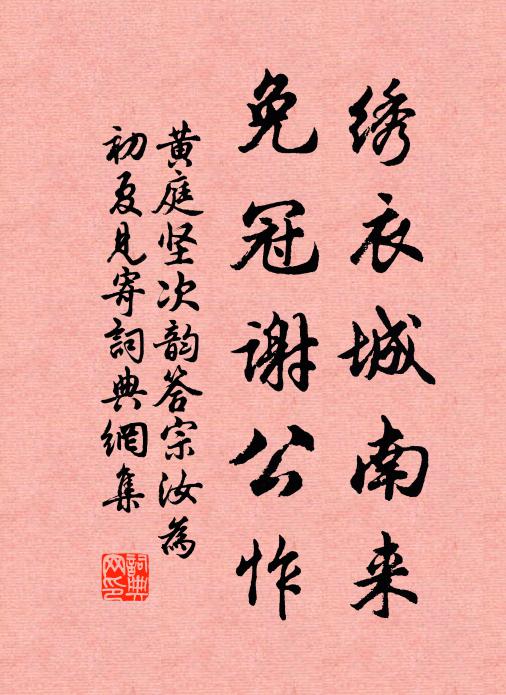 绣衣城南来
免冠谢公怍
黄庭坚次韵答宗汝为
初夏见寄詞典網集
詞典网印